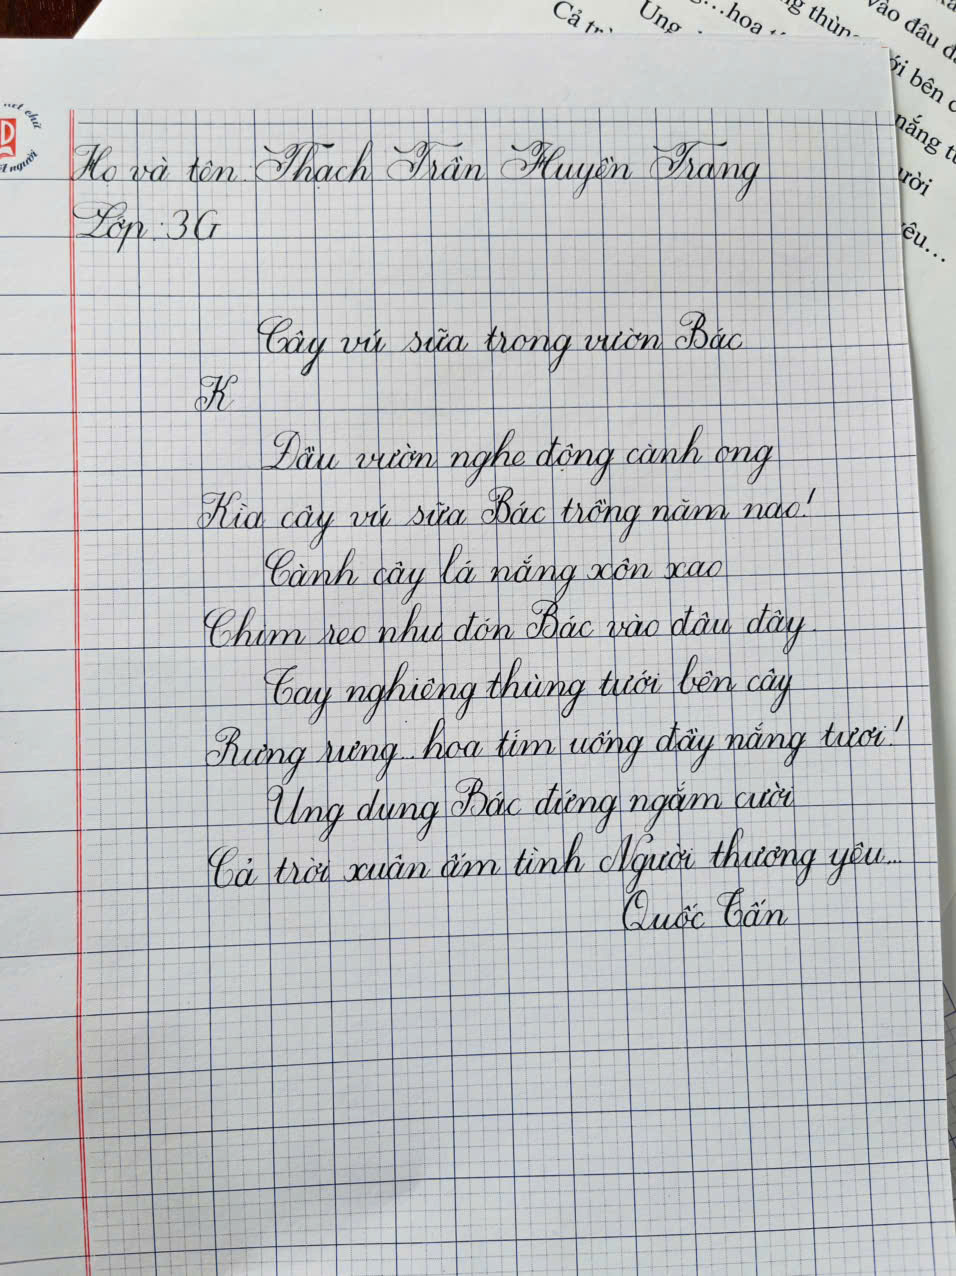 Cả tr
Ung
...hoa t
g thùn
vào đâu đ
ới bên c
nắng t
ười
êu...
nét chữ
t người
Họ và tên: Thạch Trần Huyền Trang
Lớp: 3G
Cây vú sữa trong vườn Bác
K
Đầu vườn nghe động cành ong
Kìa cây vú sữa Bác trồng năm nao!
Cành cây lá nắng xôn xao
Chim reo như đón Bác vào đâu đây.
Tay nghiêng thùng tưới bên cây
Rưng rưng...hoa tím uống đầy nắng tươi!
Ung dung Bác đứng ngắm cười
Cả trời xuân ấm tình Người thương yêu...
Quốc Tấn